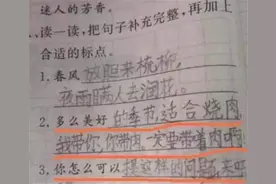 迷人的芳香。
读一读,把句子补充完整,再加上
合适的标点。
1.春风放胆来梳柳,
夜雨瞒人去润花。
2.多么美好的季节,适合烧肉
我带你,你带肉。一定要带着肉啊
3.你怎么可以提这样的问题